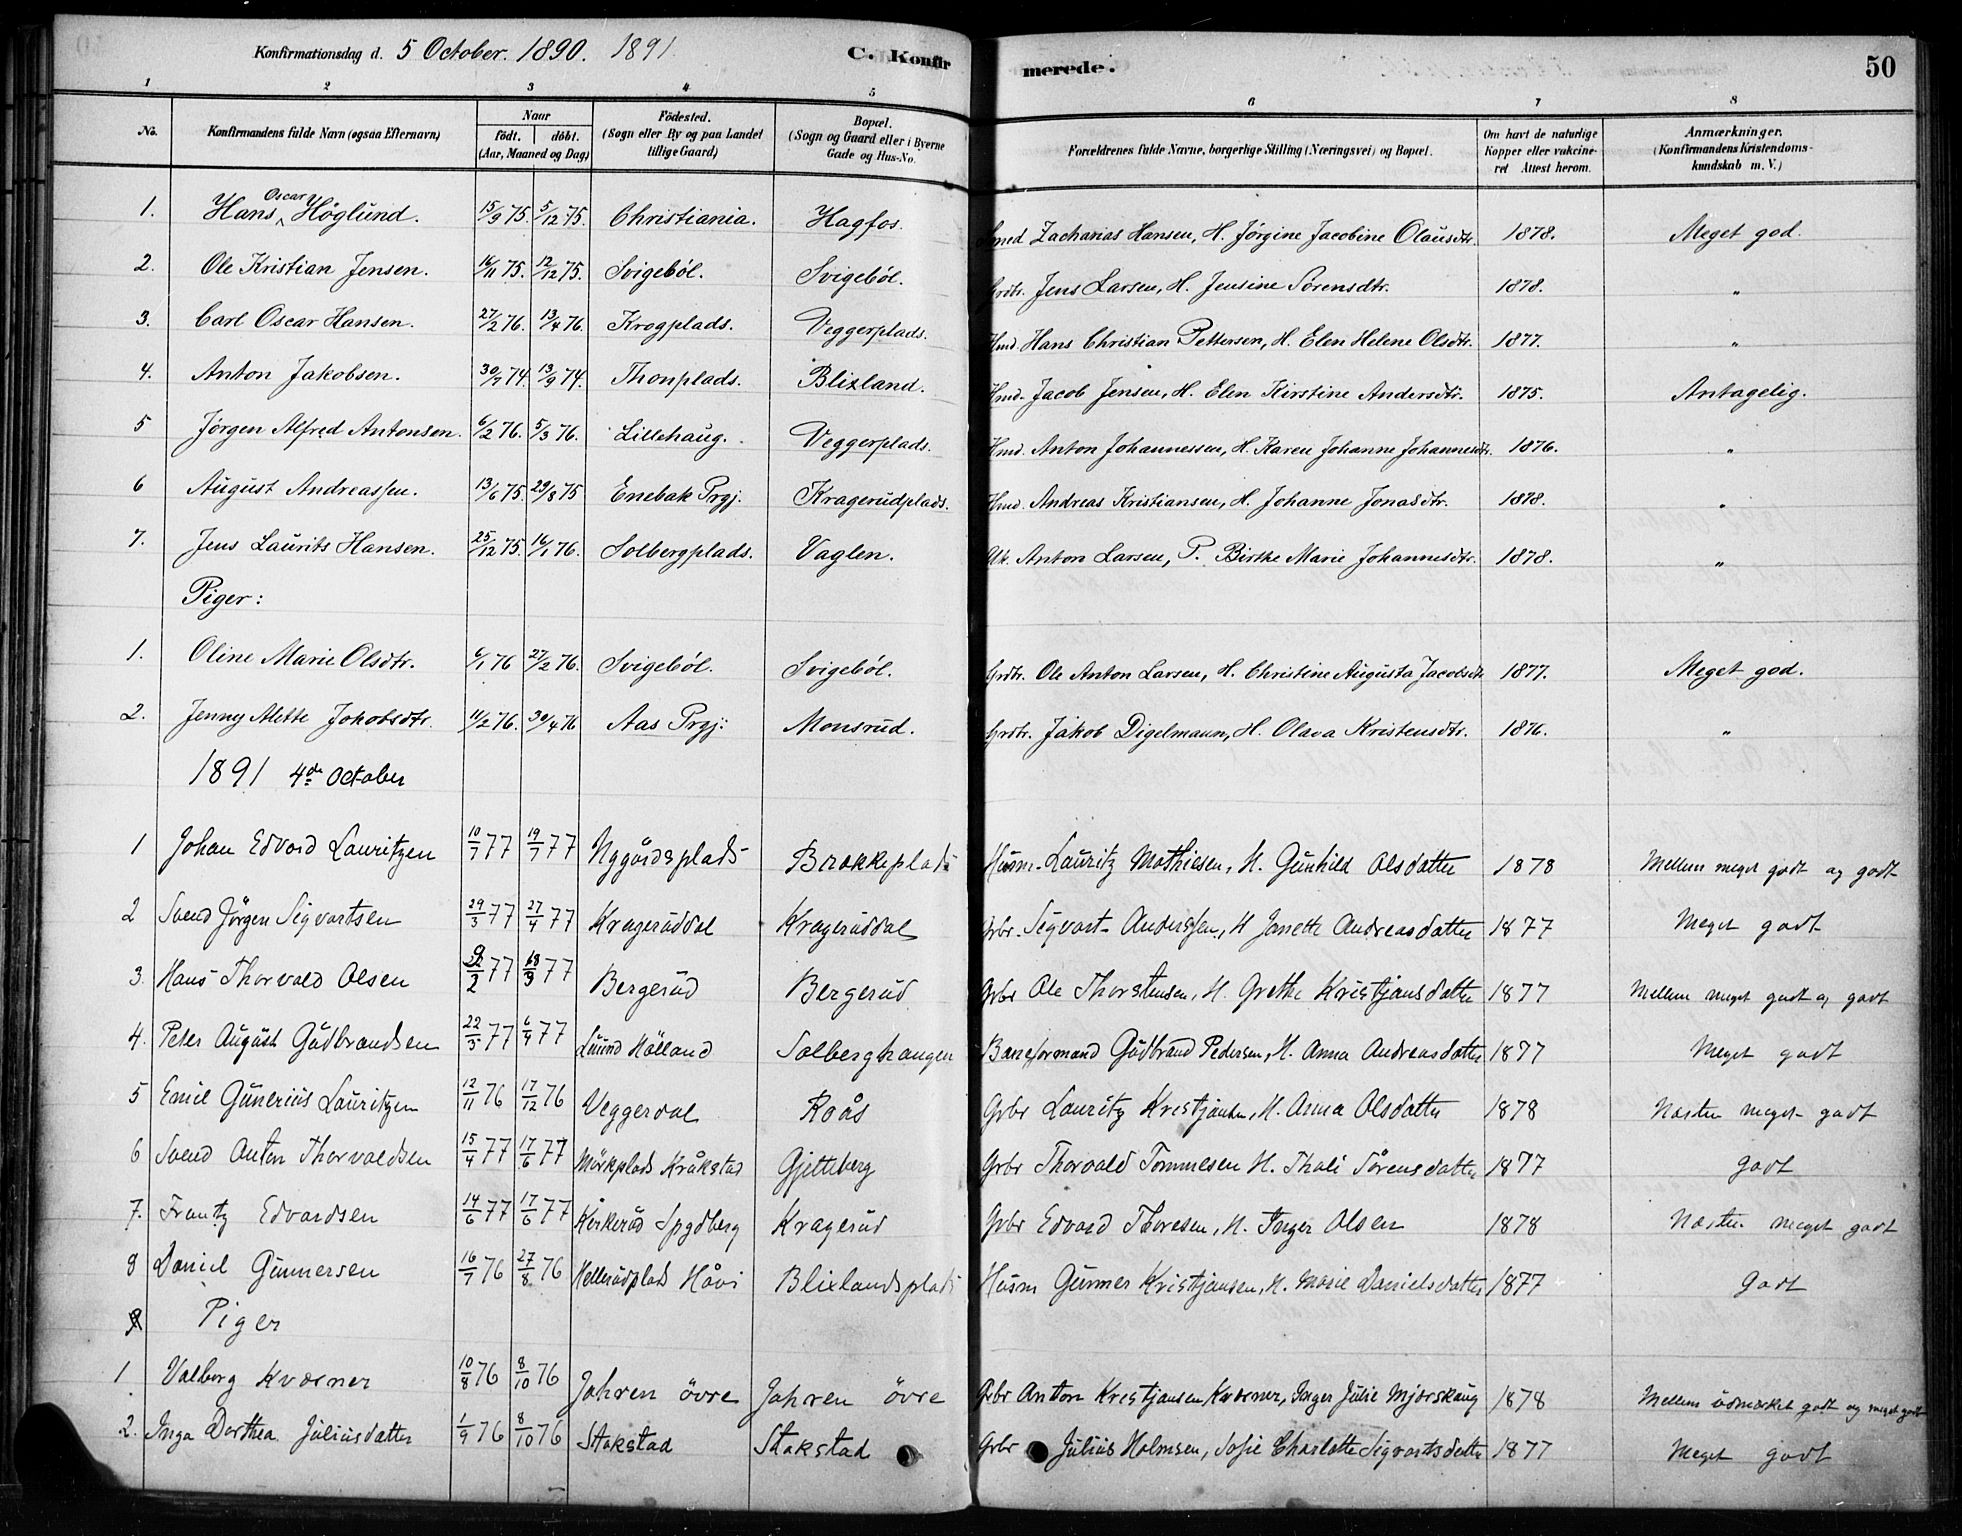 Konfirmationsdag d. 5 October. 1890. 1891 C. Konfirmerede. 50
1 2 3 4 5 6 7 8
No. Konfirmandens fulde Navn (ogsaa Efternavn) Naar födt. döbt. (Aar, Maaned og Dag) Födested. (Sogn eller By og paa Landet tillige Gaard) Bopæl. (Sogn og Gaard eller i Byerne Gade og Hus-No. Forældrenes fulde Navne, borgerlige Stilling (Næringsvei) og Bopæl. Om havt de naturlige Kopper eller vakcineret Attest herom. Anmærkninger. (Konfirmandens Kristendomskundskab m. V.)
1. Hans Oscar Höglund. 15/9 75. 5/12 75. Christiania. Hagfos. Smed Zacharias Hansen, H. Jörgine Jacobine Olausdtr. 1878. Meget god.
2. Ole Kristian Jensen. 16/11 75. 12/12 75. Svigeböl. Svigeböl. Grdbr. Jens Larsen, H. Jensine Sörensdtr. 1878. "
3. Carl Oscar Hansen. 27/2 76. 13/4 76. Krogplads. Veggerplads. Hmd. Hans Christian Pettersen, H. Elen Helene Olsdtr. 1877. "
4. Anton Jakobsen. 30/7 74. 13/9 74. Thonplads. Blixland. Hmd. Jacob Jensen, H. Elen Kirstine Andersdtr. 1875. Antagelig.
5 Jörgen Alfred Antonsen. 6/2 76. 5/3 76. Lillehaug. Veggerplads. Hmd. Anton Johannessen, H. Karen Johanne Johannesdtr. 1876. "
6 August Andreassen. 13/6 75. 29/8 75 Enebak Prgj. Kragerudplads. Hmd. Andreas Kristiansen, H. Johanne Jonasdtr. 1878. "
7. Jens Laurits Hansen. 25/12 75. 16/1 76. Solbergplads. Vaglen. Uk. Anton Larsen, P. Birthe Marie Johannesdtr. 1878. "
Piger:
1. Oline Marie Olsdtr. 6/1 76 27/2 76. Svigeböl. Svigeböl. Grdbr. Ole Anton Larsen, H. Christine Augusta Jacobsdtr 1877. Meget god.
2. Jenny Alette Jokobsdtr. 11/2 76. 30/4 76 Aas Prgj: Monsrud. Grdbr. Jakob Digelmann, H. Olava Kristensdtr. 1876. "
1891 4de October
1 Johan Edvard Lauritzen 10/7 77 19/7 77 Nygårdsplads Brækkeplads Husm. Lauritz Mathiesen, H. Gunhild Olsdatter 1878 Mellem meget godt og godt
2 Svend Jörgen Sigvartsen 29/3 77 27/4 77 Krageruddal Krageruddal Grbr. Sigvart Anderssen, H Janette Andreasdatter 1877 Meget godt
3. Hans Thorvald Olsen 77 77 Bergerud Bergerud Grbr Ole Thorstensen, H. Grethe Kristjansdatter 1877 Mellem meget godt og godt
4. Peter August Gudbrandsen 22/3 77 77 Höland Solberghaugen Baneformand Gudbrand Pedersen, H. Anna Andreasdatter 1877 Meget godt
5 Emil Gunerius Lauritzen 12/11 76 17/12 76 Veggerdal Roås Grbr Lauritz Kristjansen, H. Anna Olsdatter 1878 Næsten meget godt
6 Svend Anton Thorvaldsen 15/4 77 17/6 77 Mörkplads Kråkstad Gjetteberg Grbr Thorvald Tommesen H. Thali Sörensdatter 1877 Godt
7. Frantz Edvardsen 14/6 77 17/6 77 Kirkerud Spydberg Kragerud Grbr Edvard Thoresen, H. Inger Olsen 1878 Næsten meget godt
8 Daniel Gunnersen 16/7 76 27/8 76 Hellerudplads Håvi Blixlandsplads Husm Gunner Kristjansen, H. Marie Danielsdatter 1877 Godt
Piger
1 Valborg Kværner 10/8 76 8/10 76 Jahren övre Jahren övre Grbr Anton Kristjansen Kværner, Inger Julie Mjærskaug 1878 Mellem udmærket godt og meget godt
2. Inga Dorthea Juliusdatter 1/9 76 8/10 76 Stakstad Stakstad Grbr Julius Holmsen, Sofie Charlotte Sigvartsdatter 1877 Meget godt